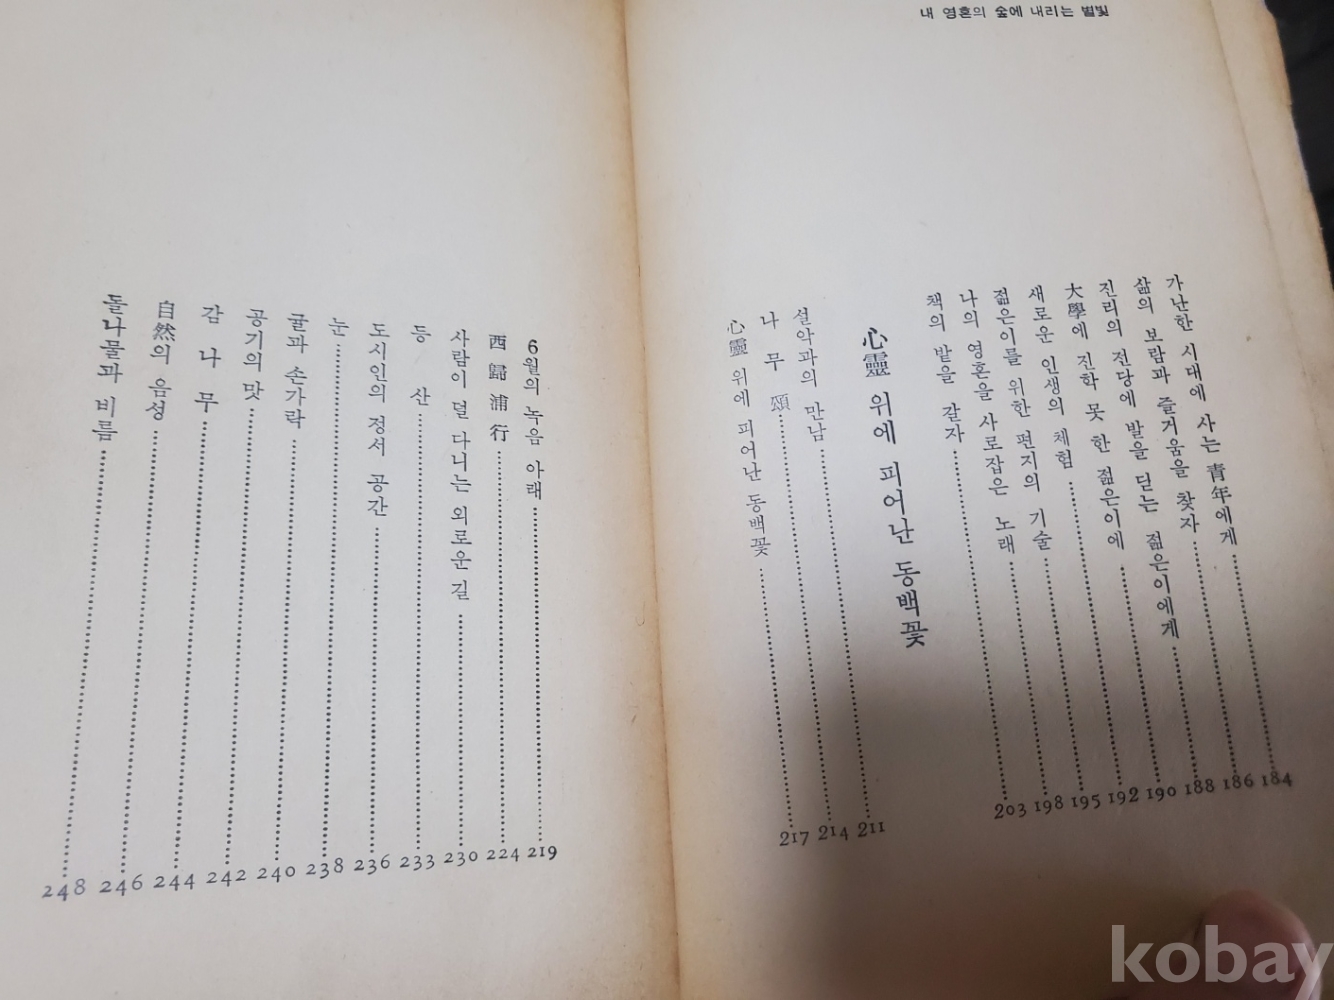 내 영혼의 숲에 내리는 별빛
가난한 시대에 사는 靑年에게 184
삶의 보람과 즐거움을 찾자 186
진리의 전당에 발을 딛는 젊은이에게 188
大學에 진학 못 한 젊은이에 190
새로운 인생의 체험 192
젊은이를 위한 편지의 기술 195
나의 영혼을 사로잡은 노래 198
책의 밭을 갈자 203
心靈 위에 피어난 동백꽃
설악과의 만남 211
나 무 頌 214
心靈 위에 피어난 동백꽃 217
6월의 녹음 아래 219
西 歸 浦 行 224
사람이 덜 다니는 외로운 길 230
등 산 233
도시인의 정서 공간 236
눈 238
귤과 손가락 240
공기의 맛 242
감 나 무 244
自然의 음성 246
돌나물과 비름 248
kobay